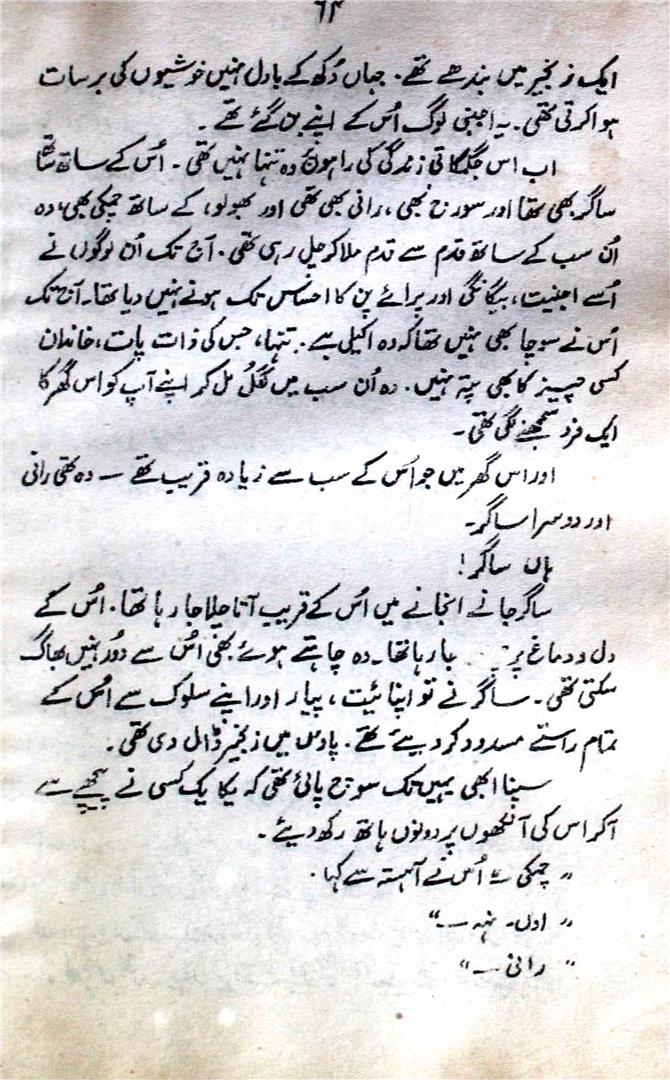 ۶۴
ایک زنجیر میں بندھے تھے۔ جہاں دُکھ کے بادل نہیں خوشیوں کی برسات
ہوا کرتی تھی۔ یہ اجنبی لوگ اُس کے اپنے بن گئے تھے۔
اب اس جگمگاتی زندگی کی راہوں وہ تنہا نہیں تھی۔ اُس کے ساتھ ساتھ
ساگر بھی تھا اور سورج بھی، رانی بھی تھی اور بھولو، کے ساتھ چمکی بھی، وہ
اُن سب کے ساتھ قدم سے قدم ملا کر چل رہی تھی۔ آج تک اُن لوگوں نے
اُسے اجنیت، بیگانگی اور پرائے پن کا احساس تک ہونے نہیں دیا تھا۔ آج تک
اُس نے سوچا بھی نہیں تھا کہ وہ اکیلی ہے۔ تنہا، جس کی ذات پات، خاندان
کسی چیز کا بھی پتہ نہیں۔ وہ اُن سب میں گھُل مل کر اپنے آپ کو اس گھر کا
ایک فرد سمجھنے لگی تھی۔
اور اس گھر میں جو اُس کے سب سے زیادہ قریب تھے — وہ تھی رانی
اور دوسرا ساگر۔
ہاں ساگر!
ساگر جانے انجانے میں اُس کے قریب آتا چلا جا رہا تھا۔ اُس کے
دل و دماغ پر جا رہا تھا۔ وہ چاہتے ہوئے بھی اُس سے دُور نہیں بھاگ
سکتی تھی۔ ساگر نے تو اپنائیت، پیار اور اپنے سلوک سے اُس کے
تمام راستے مسدود کر دیے تھے۔ پاؤں میں زنجیر ڈال دی تھی۔
سپنا ابھی یہیں تک سوچ پائی تھی کہ یکایک کسی نے پیچھے سے
آکر اس کی آنکھوں پر دونوں ہاتھ رکھ دیئے۔
"چمکی" اُس نے آہستہ سے کہا۔
"اوں۔ نہہ —"
"رانی —"